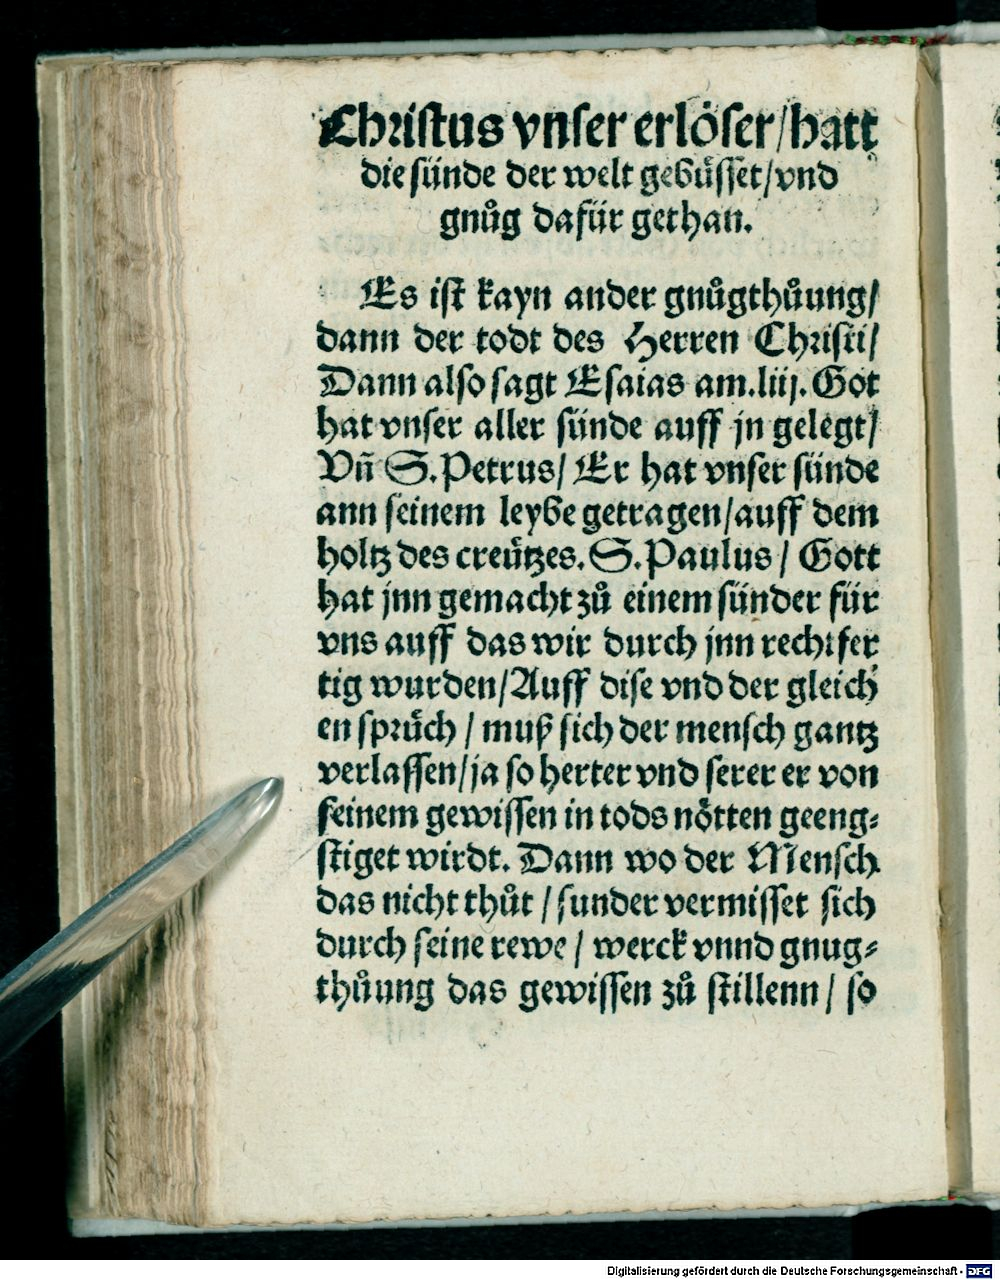 Christus vnser erlöser/hatt
die sünde der welt gebüsset/vnd
gnůg dafür gethan.
Es ist kayn ander gnůgthůung/
dann der todt des Herren Christi/
Dann also sagt Esaias am.liij. Got
hat vnser aller sünde auff jn gelegt/
Vñ S.Petrus/ Er hat vnser sünde
ann seinem leybe getragen/auff dem
holtz des creützes. S.Paulus/ Gott
hat jnn gemacht zů einem sünder für
vns auff das wir durch jnn rechtfer
tig wurden/Auff dise vnd der gleich
en sprüch / muß sich der mensch gantz
verlassen/ja so herter vnd serer er von
seinem gewissen in tods nötten geeng⸗
stiget wirdt. Dann wo der Mensch
das nicht thůt / sunder vermisset sich
durch seine rewe / werck vnnd gnug⸗
thůung das gewissen zů stillenn / so
Digitalisierung gefördert durch die Deutsche Forschungsgemeinschaft - DFG